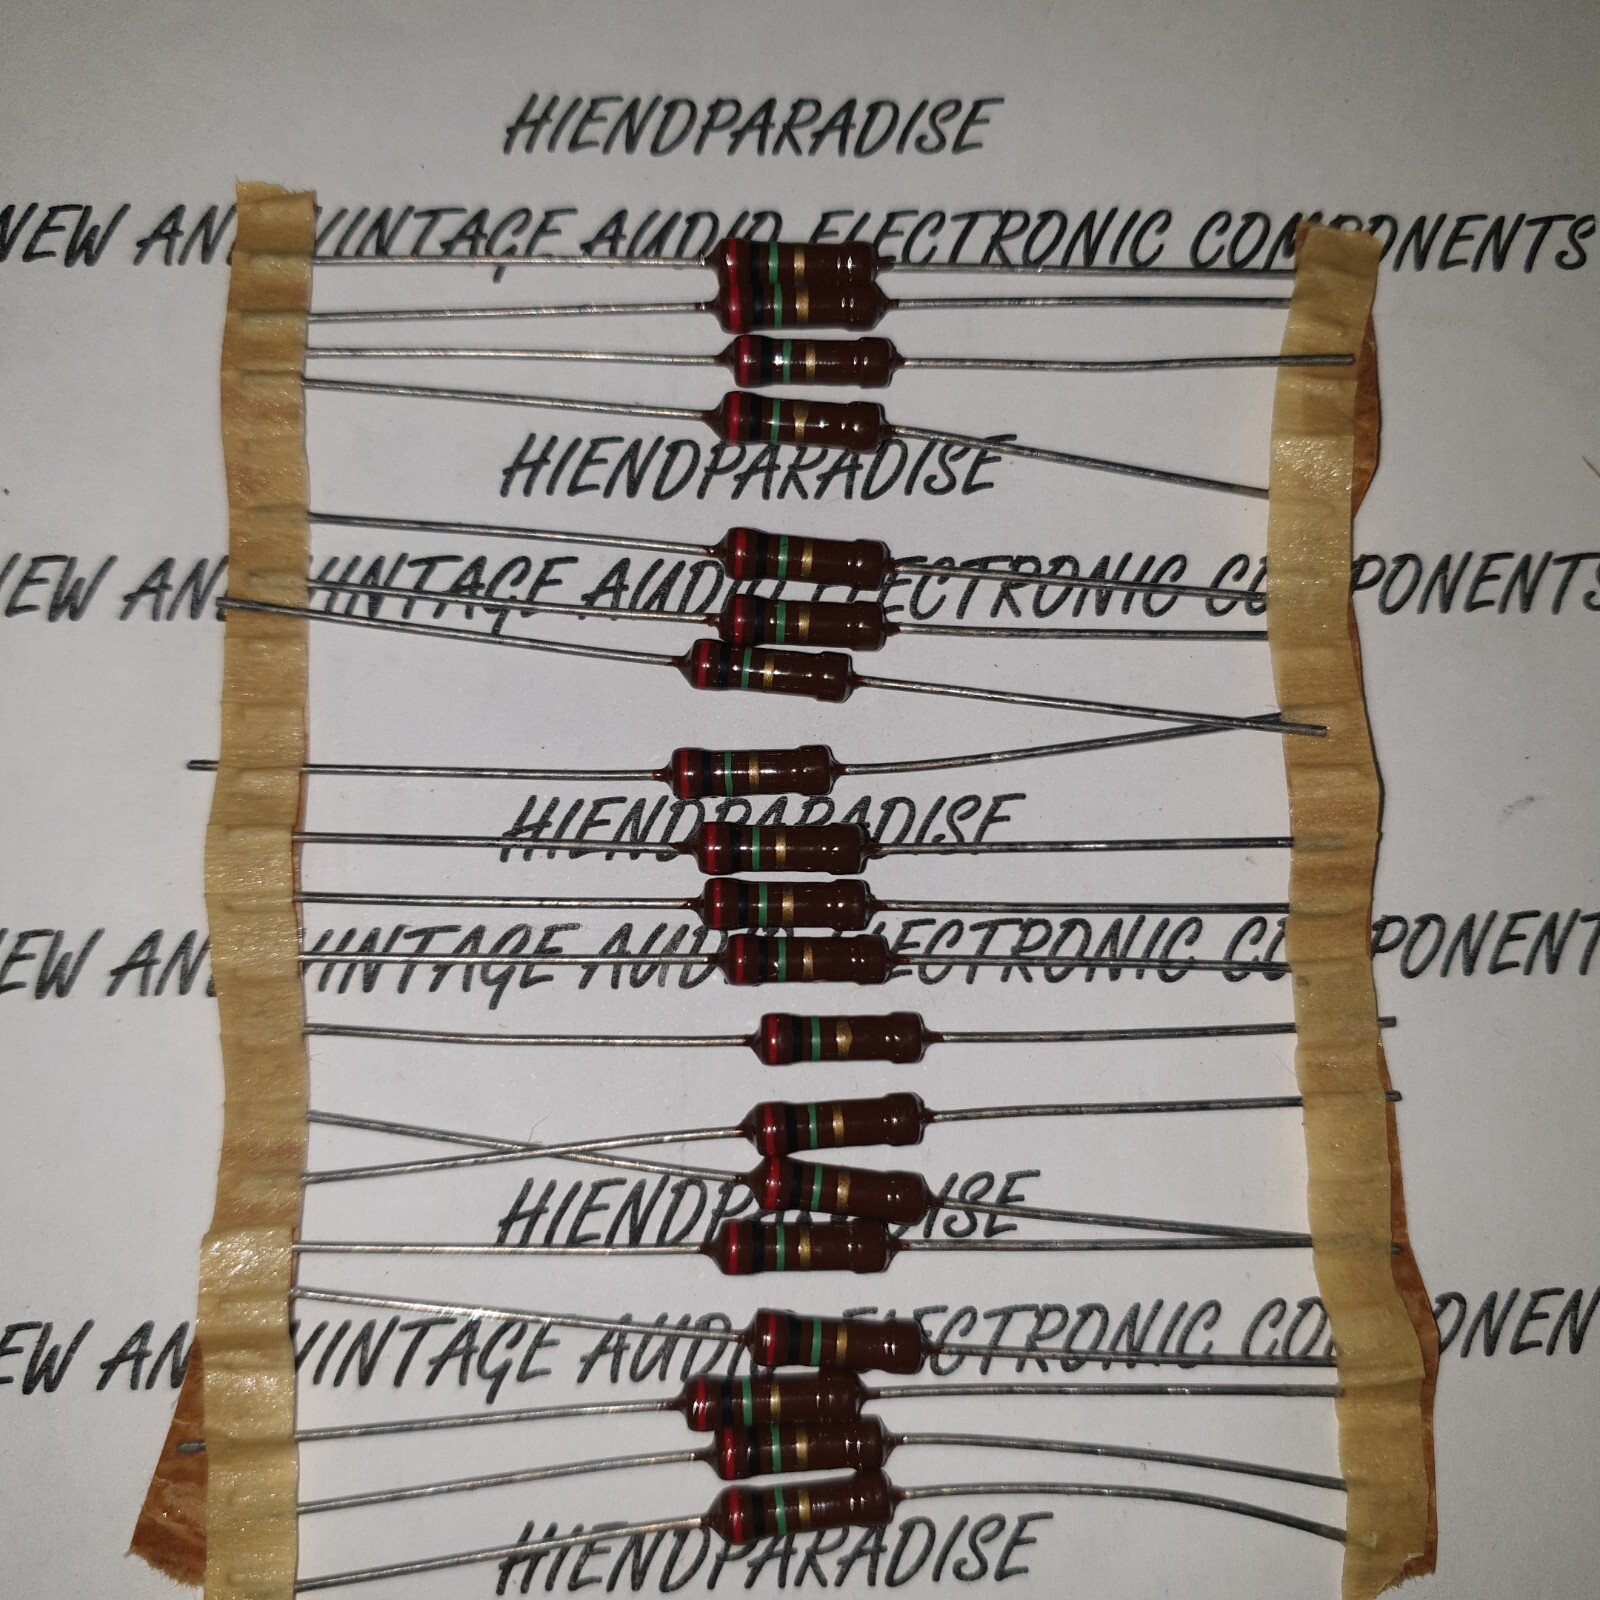 HIENDPARADISE
NEW AND VINTAGE AUDIO ELECTRONIC COMPONENTS
HIENDPARADISE
NEW AND VINTAGE AUDIO ELECTRONIC COMPONENTS
HIENDPARADISE
NEW AND VINTAGE AUDIO ELECTRONIC COMPONENTS
HIENDPARADISE
NEW AND VINTAGE AUDIO ELECTRONIC COMPONENTS
HIENDPARADISE